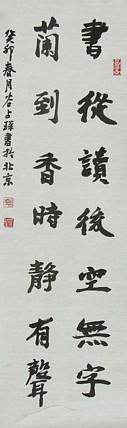 書從讀後空無字
蘭到香時靜有聲
癸卯春月谷占琢書於北京